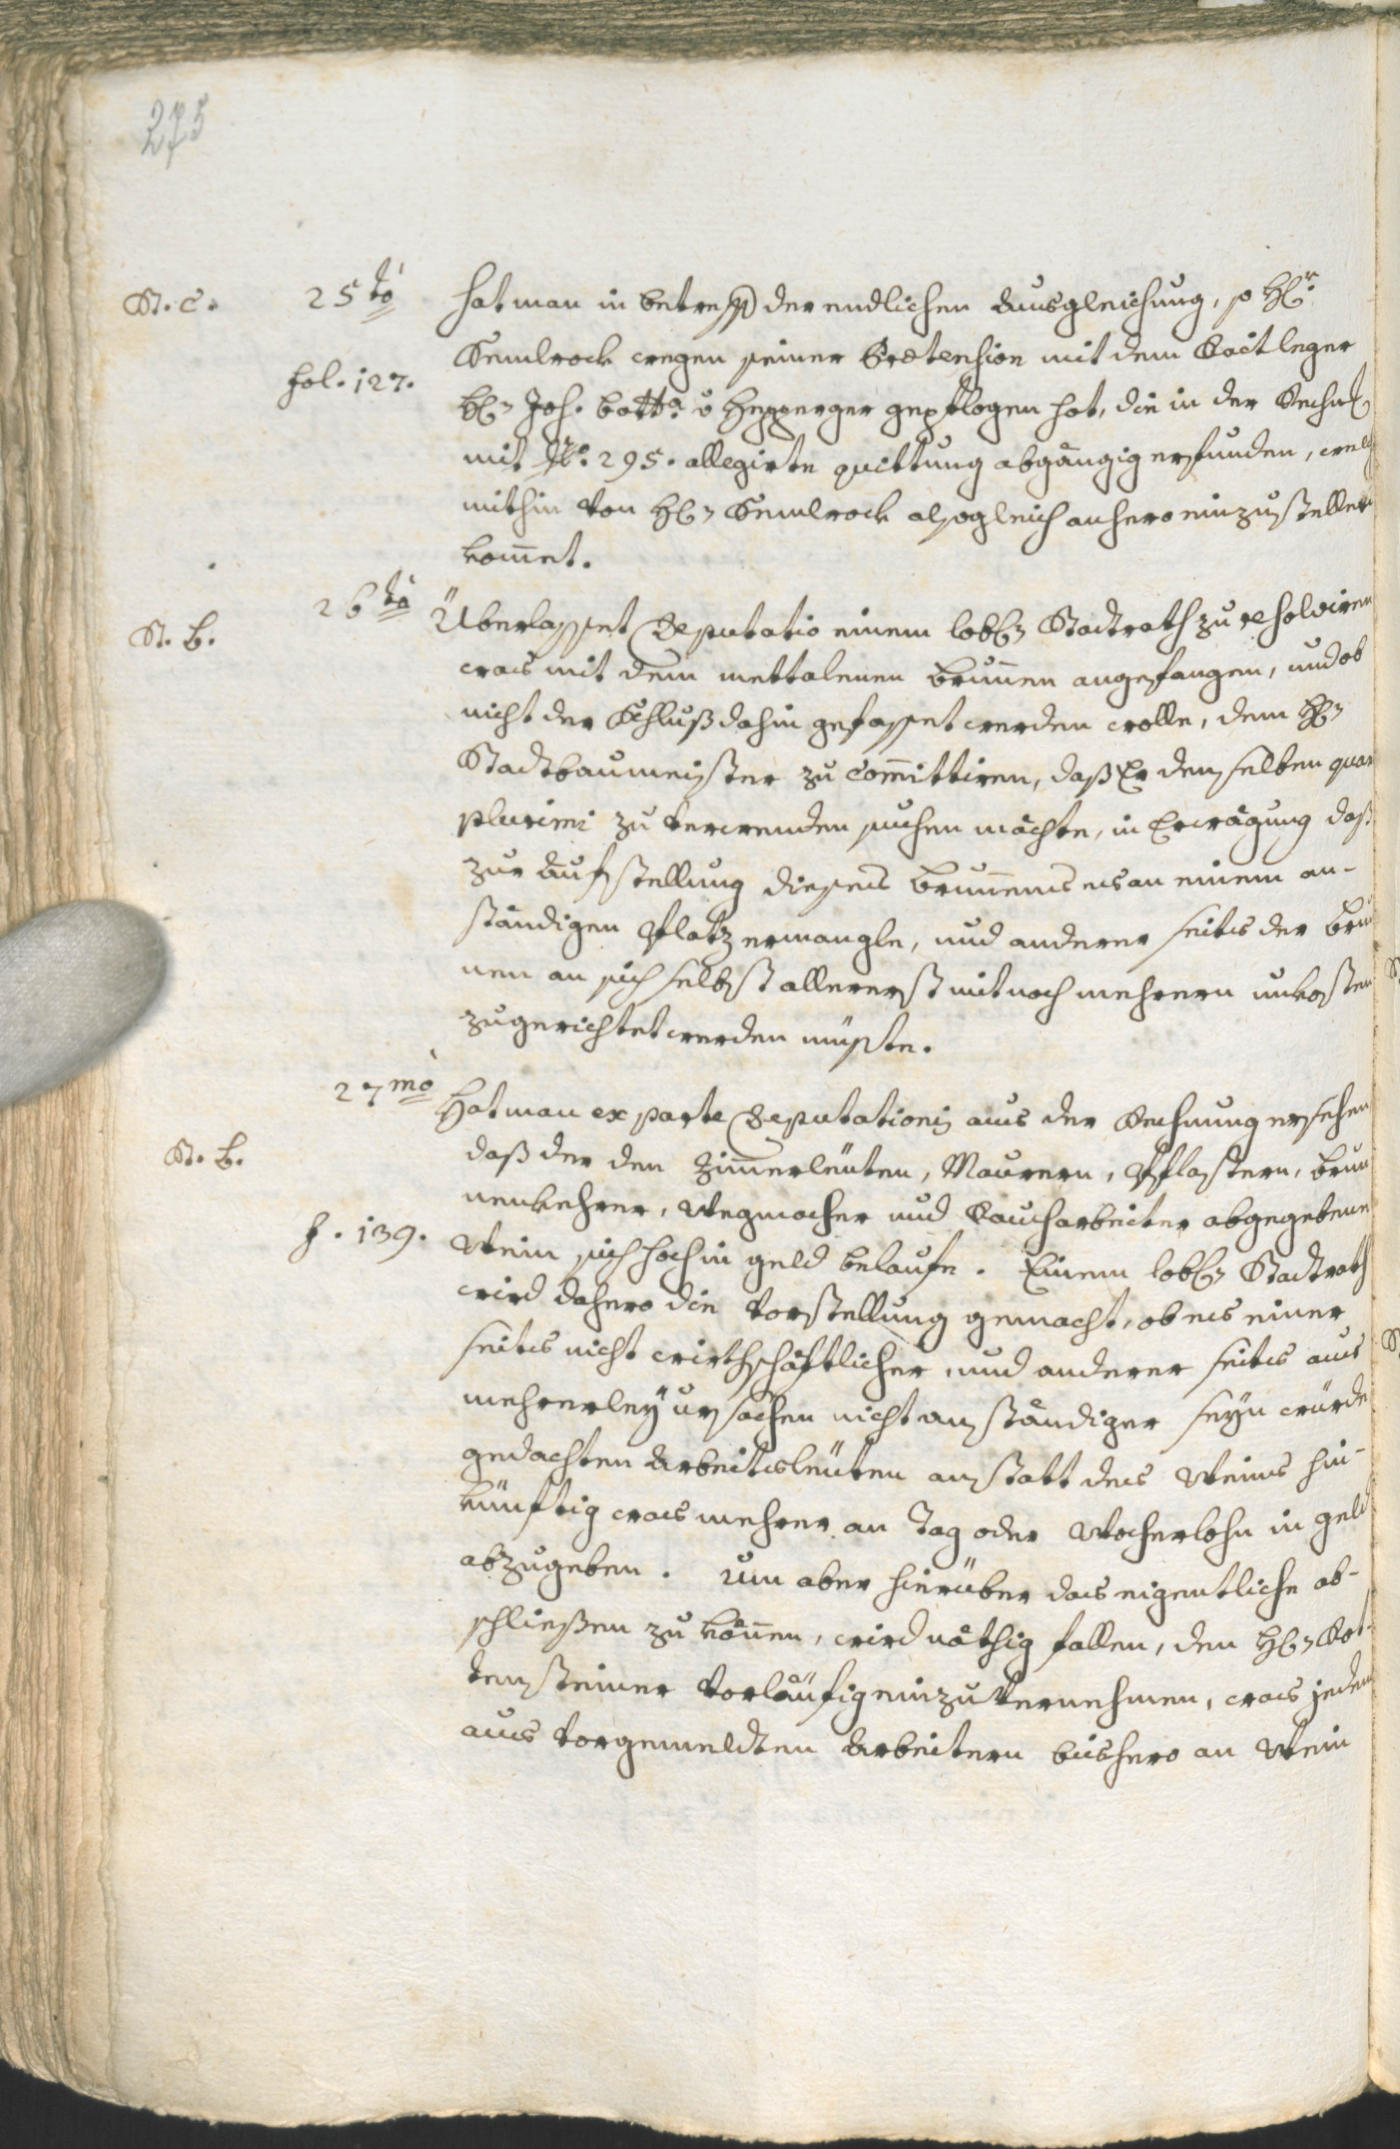 275
St. C. 25to hat man in betreff der endlichen Ausgleichung, so H:r
Semlrock wegen seiner Prætension mit dem Raitleger
fol. 127.
H: Joh. Batta v Hepperger gepflogen hat, die in der Rechn:
mit No. 295. allegirte quittung abgängig erfunden, welch
mithin von H: Semlrock alsogleich anhero einzustellen
kom̅et.
St. B. 26to Überlasset Deputatio einem lobl: Stadtrath zu resolviren
was mit dem mettalenen brun̅en anzufangen, und ob
nicht der Schluß dahin gefasset werden wolle, dem H:
Stadtbaumeister zu Com̅ittiren, daß Er denselben quan
plurimi zu verwenden suchen möchte, in Erwägung daß
zur aufstellung dieses brun̅ens es an einem an-
ständigen Platz ermangle, und anderer seits der brun̅
nen an sich selbst allererst mit noch mehrern unkosten
zugerichtet werden müste.
27mo Hat man ex parte Deputationis aus der Rechnung ersehen
St. B.
daß der den Zim̅erleüten, Maurern, Pflastern, brun
nenkehrer, Wegmacher und Raucharbeiter abgegebene
f. 139.
Wein sich hoch in geld belaufe. Einem lobl: Stadtrath
wird dahero die Vorstellung gemacht, ob es einer
seits nicht wirthschäftlicher, und anderer seits aus
mehrerleÿ ursachen nicht anständiger seÿn würde
gedachten Arbeitsleüten anstatt des Weins hin-
künftig was mehrer an Tag oder Wocherlohn in geld
abzugeben. Um aber hierüber das eigentliche ab-
schließen zu kön̅en, wird nöthig fallen, den H: Rot-
tensteiner vorläüfig einzuvernehmen, was jeden
aus vorgemeldten Arbeitern bishero an Wein